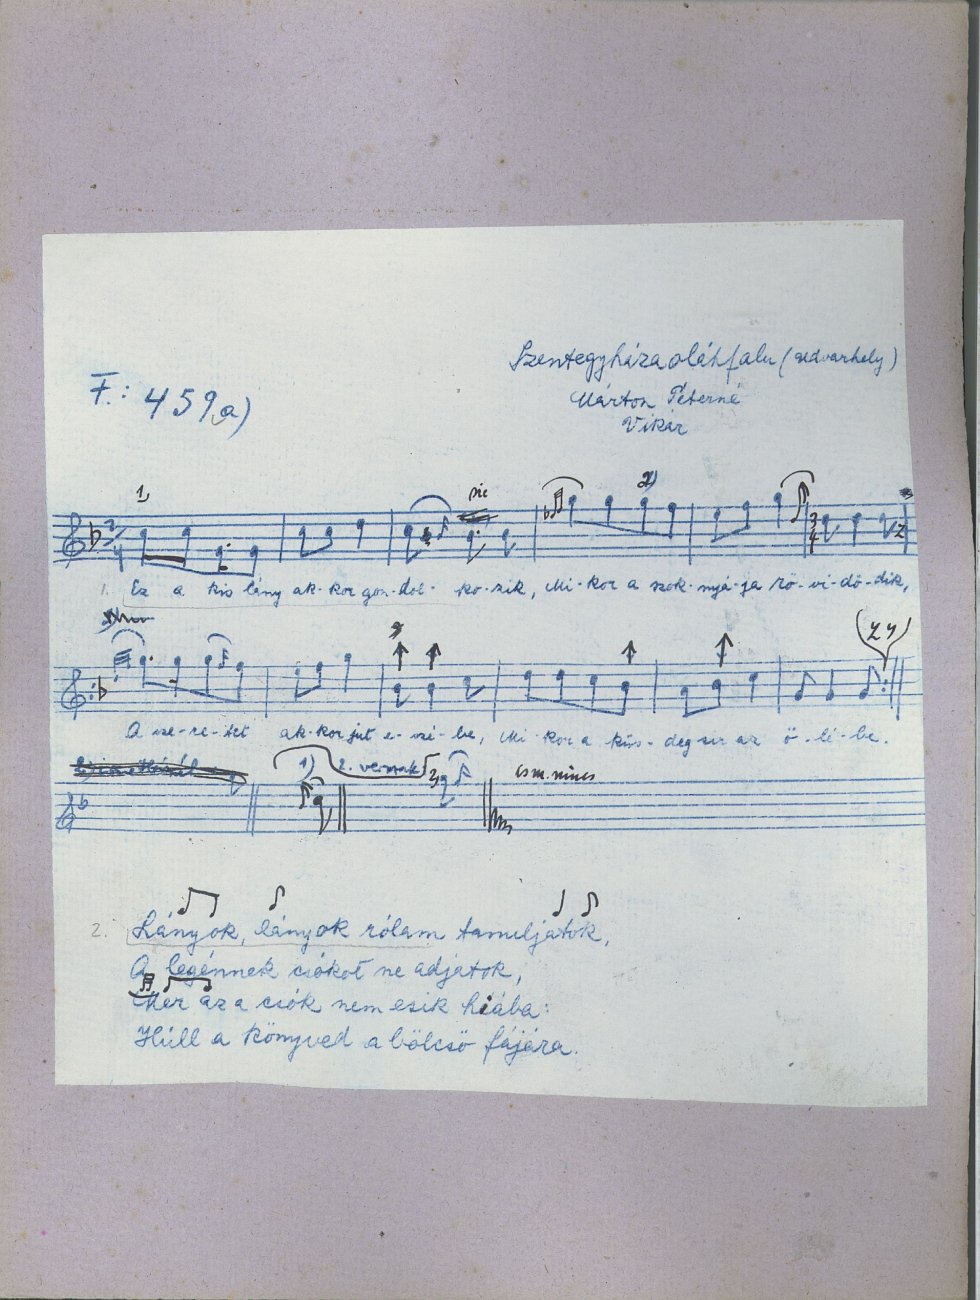 Szentegyházaoláhfalu (Udvarhely)
F.: 459 a)
Márton Péterné
Vikár
1,
sic
2)
2
4
3
4
1. Ez a kis lány ak-kor gon-dol-ko-zik, Mi-kor a szok-nyá-ja rö-vi-dö-dik,
A sze-re-tet ak-kor jut e-szi-be, Mi-kor a küs-deg sir az ö-li-be.
1) 2. versnek
ism. nincs
2. Lányok, lányok rólam tanuljatok,
A legénnek csókot ne adjatok,
Mer az a csók nem esik hiába:
Húll a könyved a bölcső fájára.